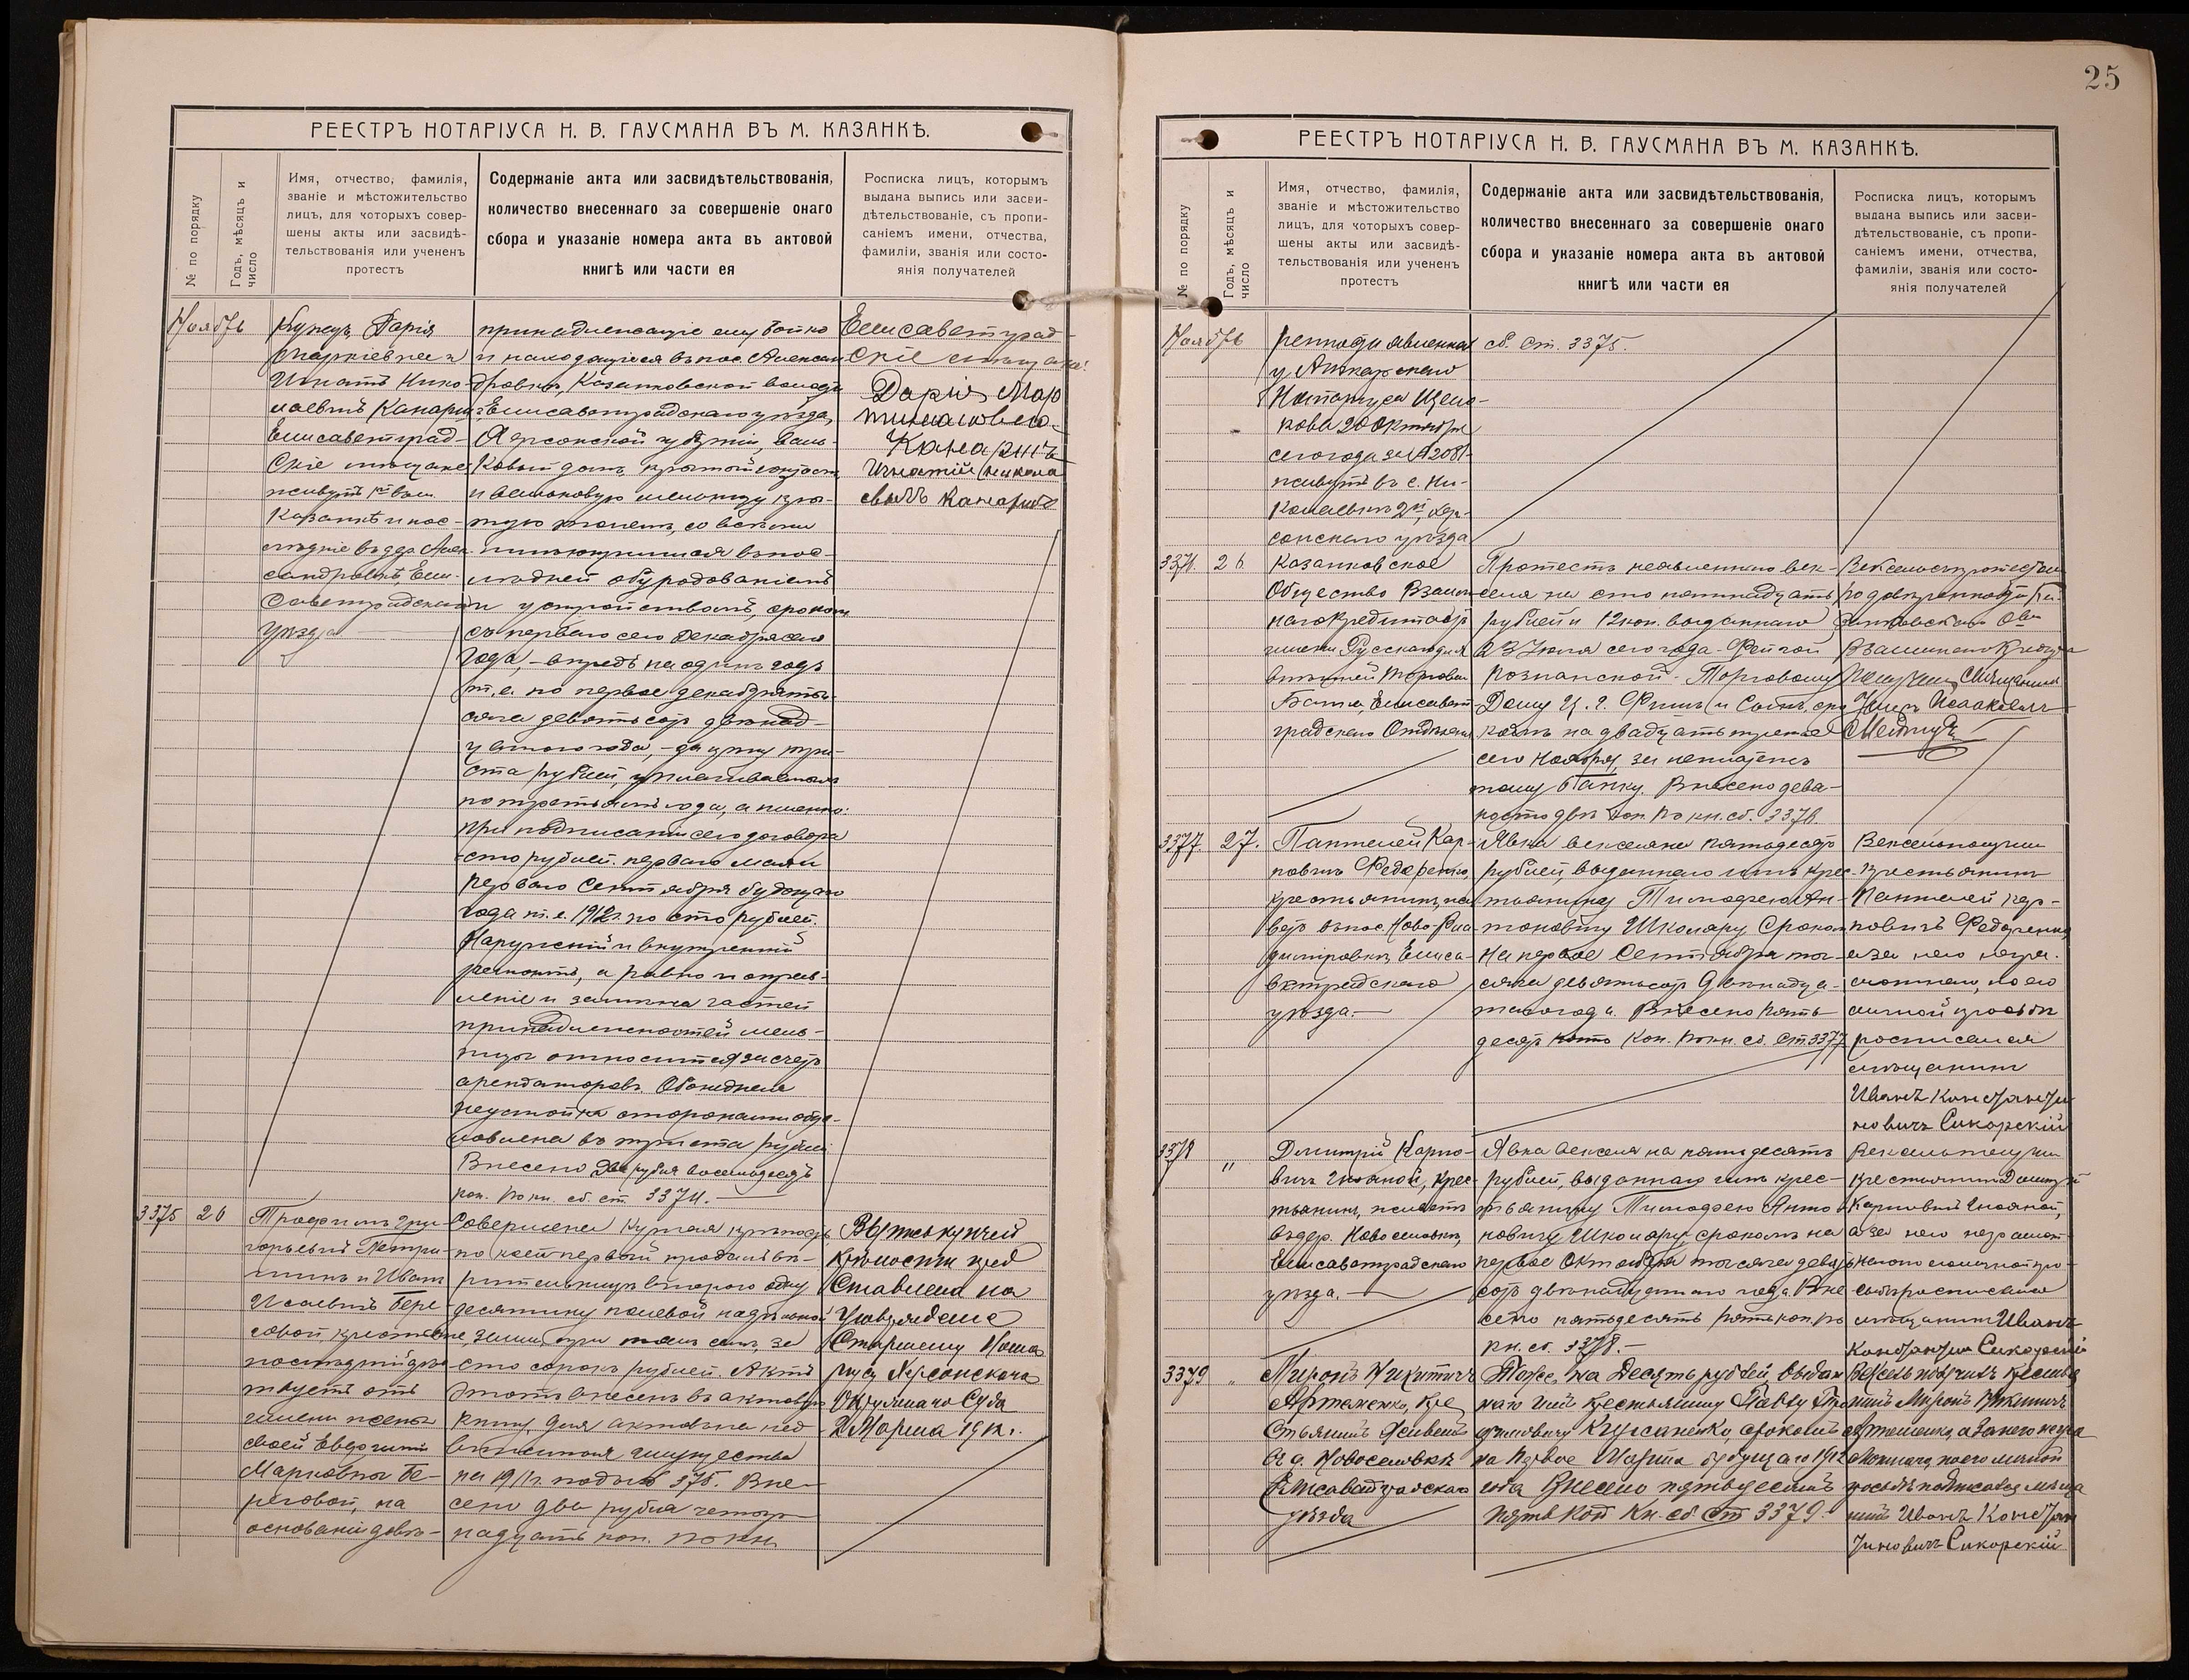 РЕЕСТРЪ НОТАРІУСА Н. В. ГАУСМАНА ВЪ М. КАЗАНКѢ.
№ по порядку
Годъ, мѣсяцъ и
число
Имя, отчество, фамилія,
званіе и мѣстожительство
лицъ, для которыхъ совер-
шены акты или засвидѣ-
тельствованія или учиненъ
протестъ
Содержаніе акта или засвидѣтельствованія,
количество внесеннаго за совершеніе онаго
сбора и указаніе номера акта въ актовой
книгѣ или части ея
Росписка лицъ, которымъ
выдана выпись или засви-
дѣтельствованіе, съ пропи-
саніемъ имени, отчества,
фамиліи, званія или состо-
янія получателей
Ноябрь
Дарія
Игнатъ Нико-
лаевичъ
Елисаветград-
скіе мѣщане
живутъ
Казанкѣ и пос-
лѣдніе въ дер. Алек-
сандровкѣ, Ели-
саветградскаго
уѣзда
принадлежащіе ему
и находящіеся въ пос. Алексан-
дровкѣ, Казанковской волости
Елисаветградскаго уѣзда,
Херсонской губерніи, валь-
ковый домъ, крытый
и вальковую мельницу кры-
тую со всѣми
имѣющимися въ пос-
лѣдней оборудованіемъ
и устройствомъ, срокомъ
съ перваго сего Декабря сего
года, - впредь на одинъ годъ
т. е. по первое декабря ты-
сяча девятьсотъ двѣнад-
цатаго года, - за цѣну три-
ста рублей, уплачиваемыхъ
по третямъ года, а именно:
при подписаніи сего договора
сто рублей. перваго мая и
перваго Сентября будущаго
года т. е. 1912 г. по сто рублей.
Наружный и внутренній
ремонтъ, а равно и
и замѣна частей
принадлежностей мель-
ницы относится за счетъ
арендаторовъ.
неустойка сторонами обу-
словлена въ триста рублей
Внесено два рубля восемьдесятъ
коп. по кн. сб. ст. 3374.
Елисаветград-
скіе мѣщане:
Дарія
Игнатій Никола
евичъ
3375
26
Трофимъ Гри-
горьевичъ
и Иванъ
Исаевичъ Бере-
говой, крестьяне,
послѣдній дѣй-
твуетъ отъ
имени жены
своей Евдокіи
Марковны Бе-
реговой, на
основаніи довѣ-
Совершена купчая крѣпость
по коей первый продалъ
второго одну
десятину полевой надѣльной
земли, при томъ селѣ, за
сто сорокъ рублей. Актъ
этотъ внесенъ въ актовую
книгу, для актовъ на нед
вижимыя имущества
на 1911 г. подъ № 375. Вне-
сено два рубля четыр-
надцать коп. по кн.
Выпись купчей
крѣпости пред
ставлена на
утвержденіе
Старшему Нота
ріусу Херсонскаго
Окружнаго Суда
2 Марта 1912 г.
25
РЕЕСТРЪ НОТАРІУСА Н. В. ГАУСМАНА ВЪ М. КАЗАНКѢ.
№ по порядку
Годъ, мѣсяцъ и
число
Имя, отчество, фамилія,
званіе и мѣстожительство
лицъ, для которыхъ совер-
шены акты или засвидѣ-
тельствованія или учиненъ
протестъ
Содержаніе акта или засвидѣтельствованія,
количество внесеннаго за совершеніе онаго
сбора и указаніе номера акта въ актовой
книгѣ или части ея
Росписка лицъ, которымъ
выдана выпись или засви-
дѣтельствованіе, съ пропи-
саніемъ имени, отчества,
фамиліи, званія или состо-
янія получателей
Ноябрь
ренности явленной
у
Нотаріуса Щел-
кова 20 Октября
сего года за № 2081
живутъ въ с. Ни-
колаевкѣ 2й, Хер-
сонскаго уѣзда
сб. ст. 3375.
3376.
26
Казанковское
Общество Взаим-
наго Кредита отъ
имени Русскаго для
внѣшней торговли
Банка, Елисавет-
градскаго Отдѣленія
Протестъ неявленнаго век-
селя на сто пятнадцать
рублей и 12 коп. выданнаго
23 Іюля сего года Фейгой
Познанской Торговому
Дому И. Г. Финъ и Сынъ, сро
комъ на двадцать третье
сего Ноября, за неплатежъ
тому Банку. Внесено девя-
носто двѣ коп. по кн. сб. 3376.
Вексель съ протестомъ
по довѣренности Ка-
занковскаго Общ.
Взаимнаго Кредита
получилъ Мѣщанинъ
Исааковичъ
3377.
27.
Пантелей Кар-
повичъ Федоренко,
крестьянинъ, жи
ветъ въ пос. Ново Вла-
димировкѣ, Елиса-
ветградскаго
уѣзда.
Явка векселя на пятьдесятъ
рублей, выданнаго имъ крес-
тьянину Тимофею Ан-
тоновичу Школяру срокомъ
на первое Сентября ты-
сяча девятьсотъ двѣнадца-
таго года. Внесено пять-
десятъ коп. по кн. сб. ст. 3377
Вексель получилъ
крестьянинъ
Пантелей Кар-
повичъ Федоренко,
а за него негра-
мотнаго, по его
личной просьбѣ
росписался
мѣщанинъ
Иванъ Константи
новичъ Сикорскій
3378
"
Дмитрій Карпо-
вичъ Гнояной, крес-
тьянинъ, живетъ
въ дер. Новоселовкѣ,
Елисаветградскаго
уѣзда.
Явка векселя на пятьдесятъ
рублей, выданнаго имъ крес-
тьянину Тимофею Анто
новичу Школяру, срокомъ на
первое Октября тысяча девять
сотъ двѣнадцатаго года. Вне
сено пятьдесятъ пять коп. по
кн. сб. 3378.
Вексель получилъ
крестьянинъ Дмитрій
Карповичъ Гнояной,
а за него неграмот-
наго по личной про-
сьбѣ росписался
мѣщанинъ Иванъ
Константин Сикорскій
3379
"
Миронъ Никитичъ
Артеменко, кре
стьянинъ живетъ
въ д. Новоселовкѣ
Елисаветградскаго
уѣзда
Тоже, на десять рублей, выдан
наго имъ крестьянину Павлу Тро
фимовичу срокомъ
на первое Марта будущаго 1912
года Внесено пятьдесятъ
пять коп Кн. сб. ст 3379.
Вексель получилъ крестья
нинъ Миронъ Никитичъ
Артеменко, а за него негра
мотнаго, по его личной
просьбѣ подписался мѣща
нинъ Иванъ Констан
тиновичъ Сикорскій